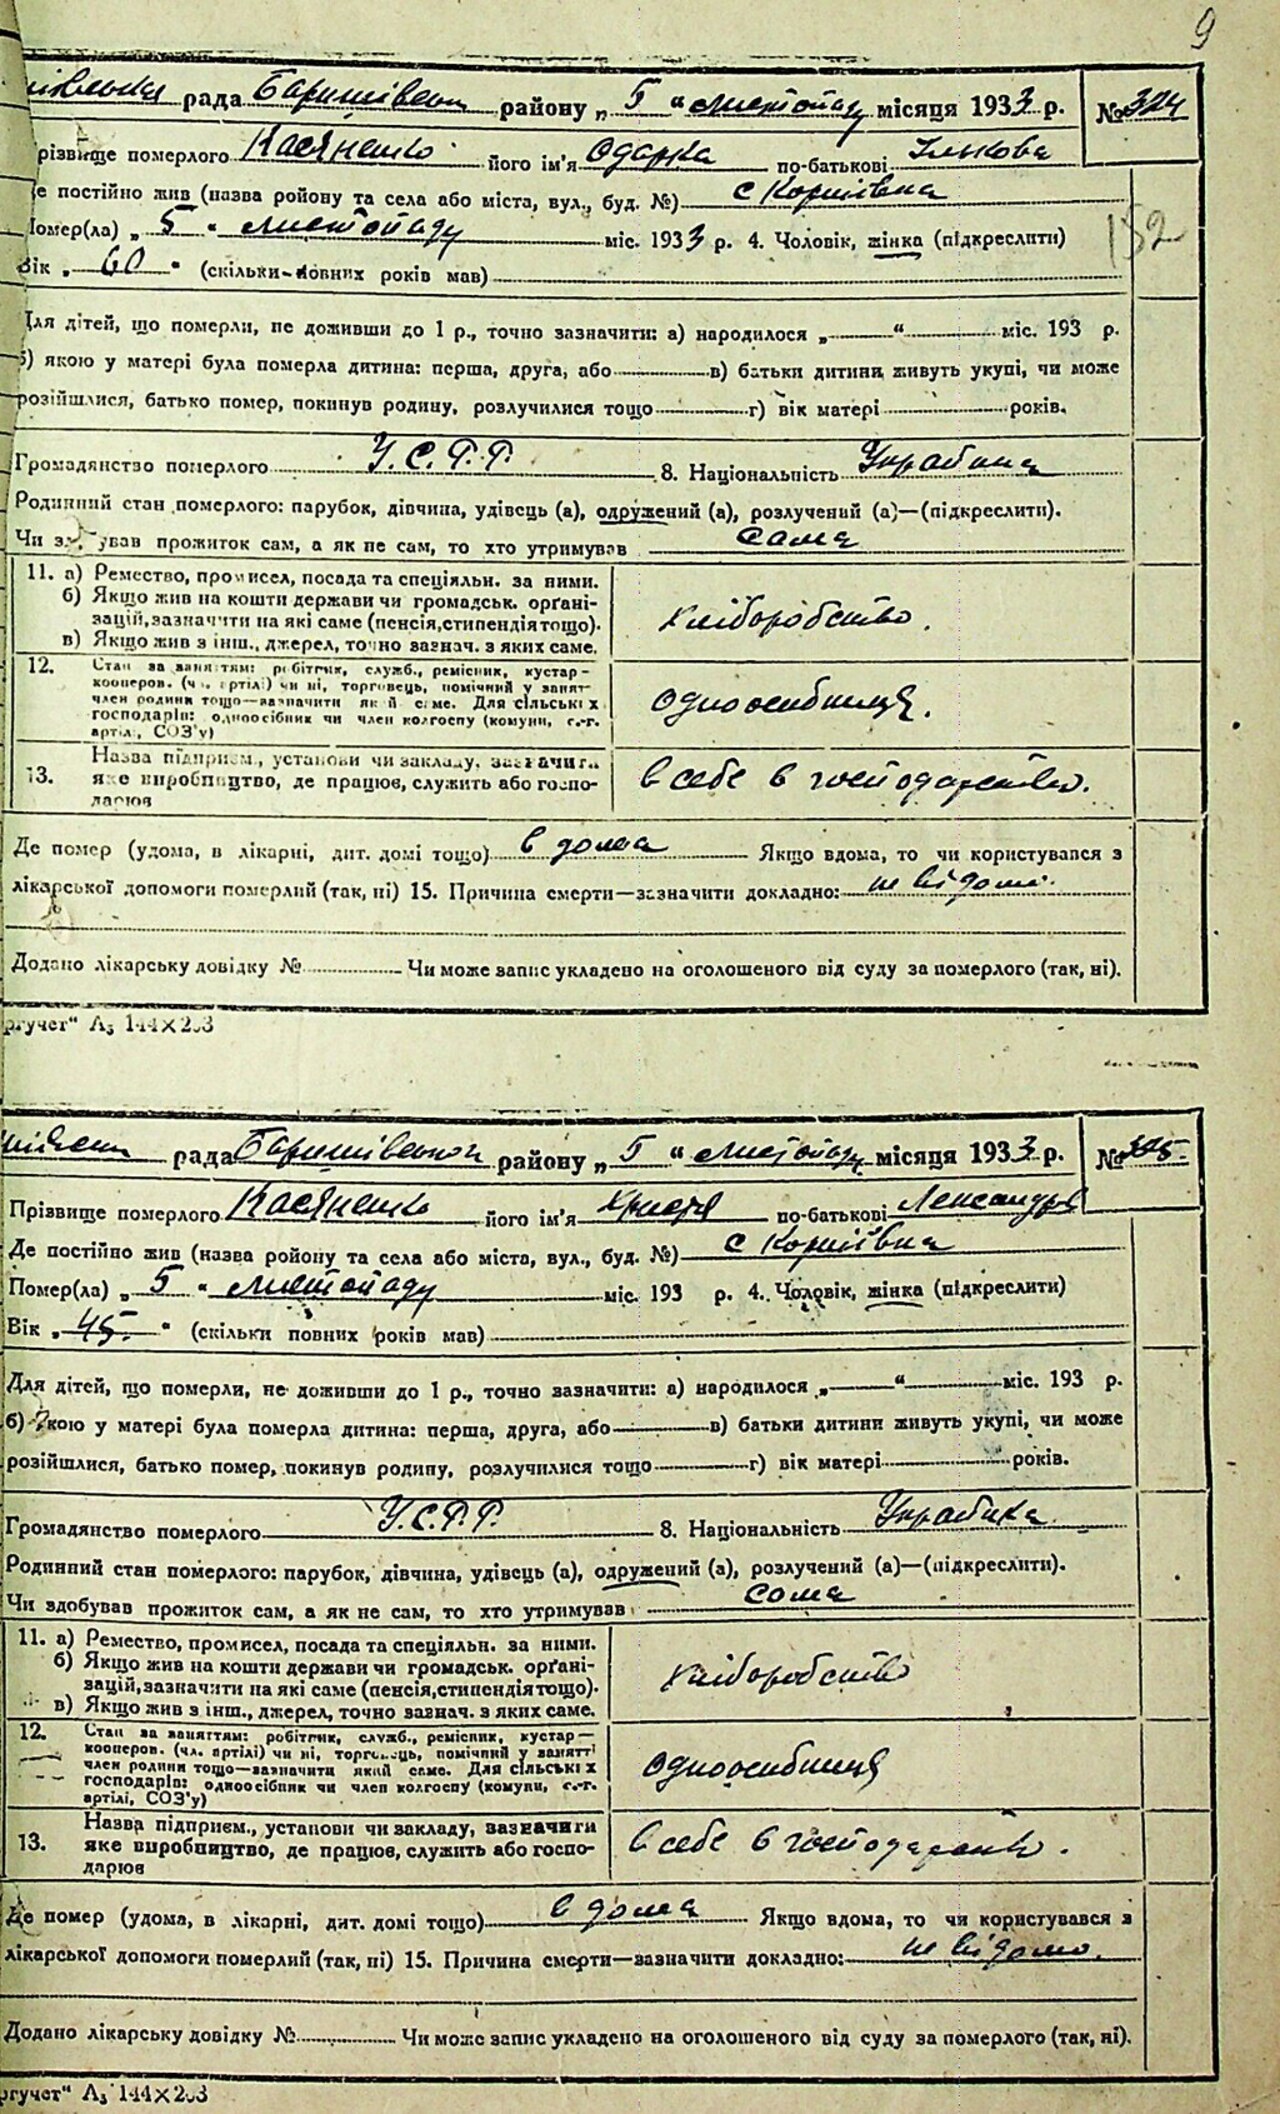 9
рада Баришівськ району „ 5 “ листопаду місяця 1933 р. № 324
різвище померлого Касяненко його ім'я Одарка по-батькові Ількова
е постійно жив (назва ройону та села або міста, вул., буд. №) с Коржівка
Помер(ла) „ 5 “ листопаду міс. 1933 р. 4. Чоловік, жінка (підкреслити)
152
Вік „ 60 “ (скільки повних років мав)
Для дітей, що померли, не доживши до 1 р., точно зазначити: а) народилося „ “ міс. 193 р.
б) якою у матері була померла дитина: перша, друга, або в) батьки дитини живуть укупі, чи може
розійшлися, батько помер, покинув родину, розлучилися тощо г) вік матері років.
Громадянство померлого У.С.Р.Р. 8. Національність Українка
Родинний стан померлого: парубок, дівчина, удівець (а), одружений (а), розлучений (а)—(підкреслити).
Чи з ував прожиток сам, а як не сам, то хто утримував сама
11. а) Ремество, промисел, посада та спеціяльн. за ними.
б) Якщо жив на кошти держави чи громадськ. орґані-
зацій, зазначити на які саме (пенсія, стипендія тощо).
в) Якщо жив з інш., джерел, точно зазнач. з яких саме.
хліборобство.
12. Стан за заняттям: робітник, служб., ремісник, кустар—
кооперов. (чл. артілі) чи ні, торговець, помічний у занят
член родини тощо—зазначити який саме. Для сільських
господарів: одноосібник чи член колгоспу (комуни, с.-г.
артілі, СОЗ'у)
одноосибниця.
13. Назва підприєм., установи чи закладу, зазначити
яке виробництво, де працює, служить або госпо-
дарює
в себе в господарстві.
Де помер (удома, в лікарні, дит. домі тощо) в дома Якщо вдома, то чи користувався з
лікарської допомоги померлий (так, ні) 15. Причина смерти—зазначити докладно: не відомо.
Додано лікарську довідку № Чи може запис укладено на оголошеного від суду за померлого (так, ні).
ргучет“ А₃ 144×203
рада Баришівської району „ 5 “ листопаду місяця 1933 р. № 325.
Прізвище померлого Касяненко його ім'я Христя по-батькові Лександров
Де постійно жив (назва ройону та села або міста, вул., буд. №) с Коржівка
Помер(ла) „ 5 “ листопаду міс. 193 р. 4. Чоловік, жінка (підкреслити)
Вік „ 45. “ (скільки повних років мав)
Для дітей, що померли, не доживши до 1 р., точно зазначити: а) народилося „ “ міс. 193 р.
б) якою у матері була померла дитина: перша, друга, або в) батьки дитини живуть укупі, чи може
розійшлися, батько помер, покинув родину, розлучилися тощо г) вік матері років.
Громадянство померлого У.С.Р.Р. 8. Національність Українка
Родинний стан померлого: парубок, дівчина, удівець (а), одружений (а), розлучений (а)—(підкреслити).
Чи здобував прожиток сам, а як не сам, то хто утримував сома
11. а) Ремество, промисел, посада та спеціяльн. за ними.
б) Якщо жив на кошти держави чи громадськ. орґані-
зацій, зазначити на які саме (пенсія, стипендія тощо).
в) Якщо жив з інш., джерел, точно зазнач. з яких саме.
хліборобство
12. Стан за заняттям: робітник, служб., ремісник, кустар—
кооперов. (чл. артілі) чи ні, торговець, помічний у занятті
член родини тощо—зазначити який саме. Для сільських
господарів: одноосібник чи член колгоспу (комуни, с.-г.
артілі, СОЗ'у)
одноосибниця
13. Назва підприєм., установи чи закладу, зазначити
яке виробництво, де працює, служить або госпо-
дарює
в себе в господарстві.
Де помер (удома, в лікарні, дит. домі тощо) в дома Якщо вдома, то чи користувався з
лікарської допомоги померлий (так, ні) 15. Причина смерти—зазначити докладно: не відомо.
Додано лікарську довідку № Чи може запис укладено на оголошеного від суду за померлого (так, ні).
ргучет“ А₃ 144×203